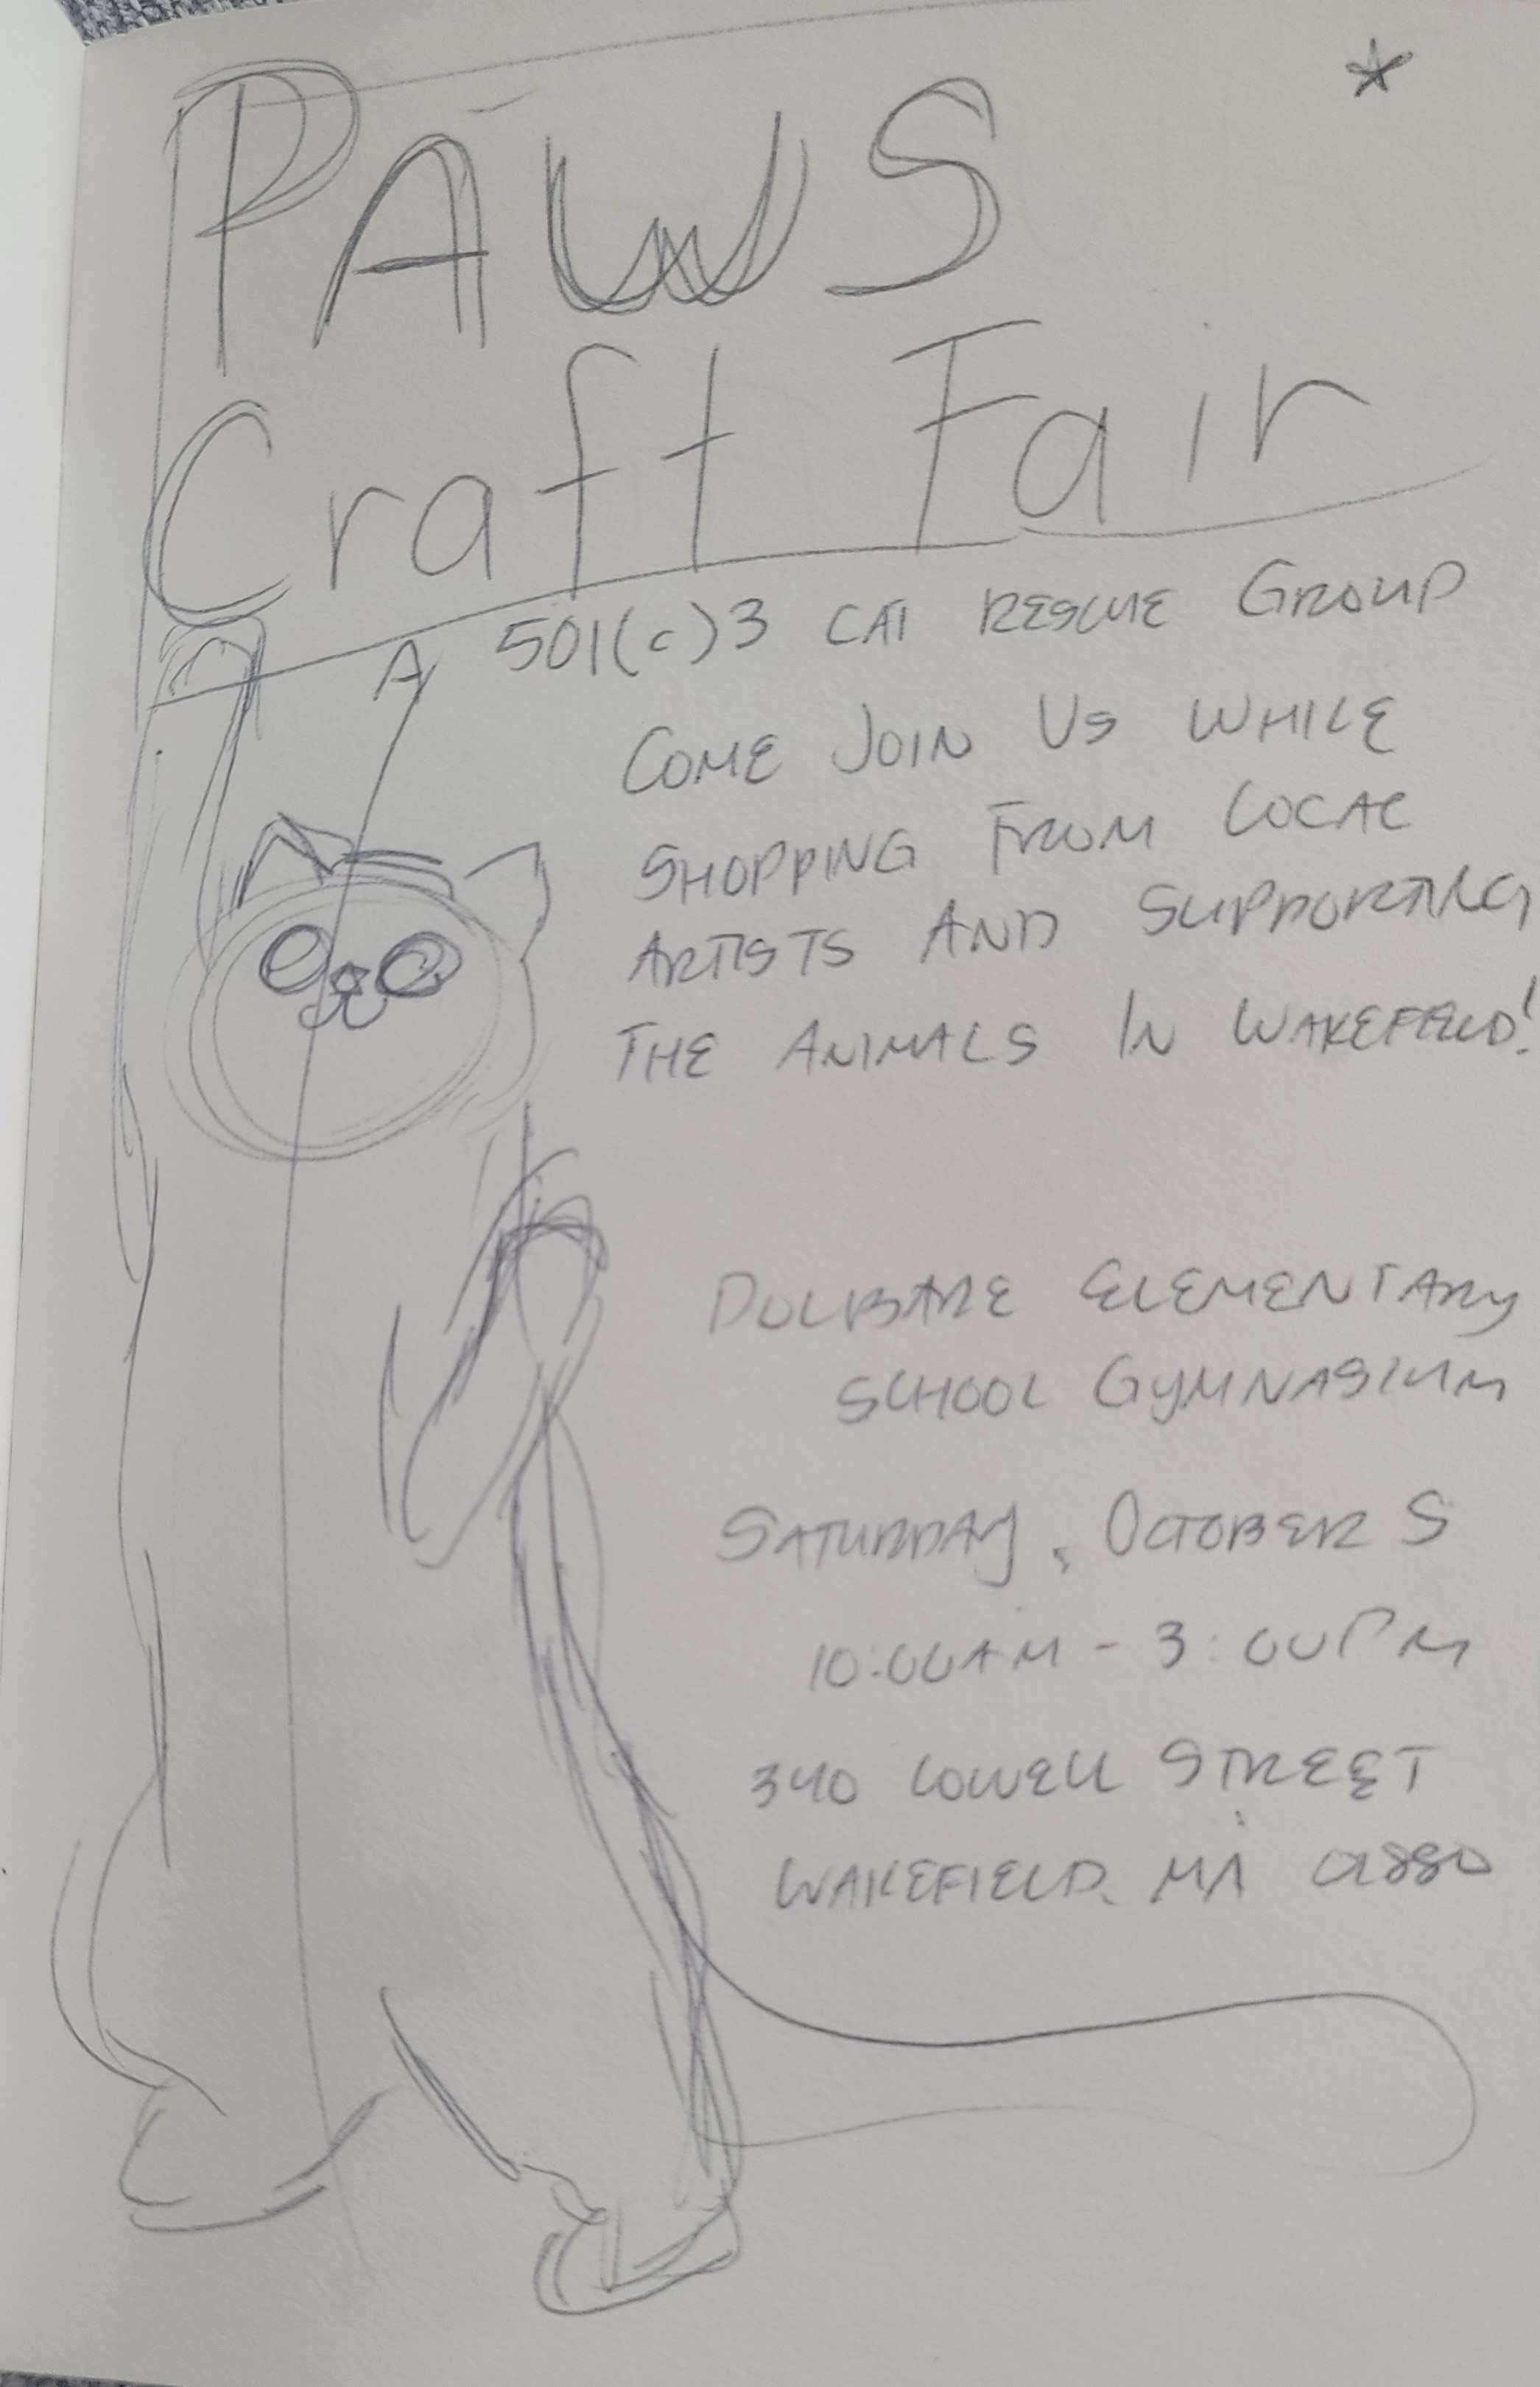 PAWS
Craft Fair
A 501(c)3 CAT RESCUE GROUP
COME JOIN US WHILE
SHOPPING FROM LOCAL
ARTISTS AND SUPPORTING
THE ANIMALS IN WAKEFIELD!
DOLBARE ELEMENTARY
SCHOOL GYMNASIUM
SATURDAY, OCTOBER 5
10:00AM - 3:00PM
340 LOWELL STREET
WAKEFIELD, MA 01880